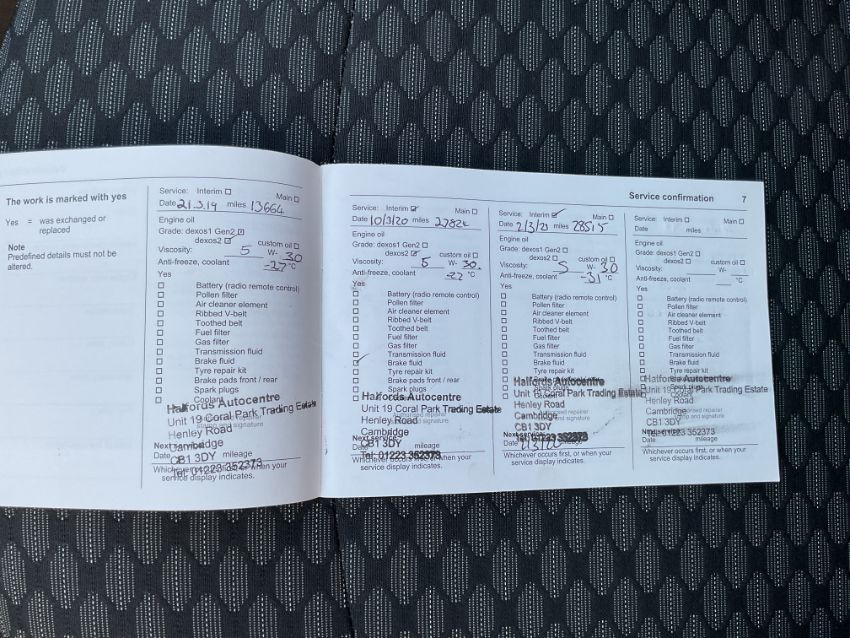 The work is marked with yes
Yes = was exchanged or
replaced
Note
Predefined details must not be
altered.
Service: Interim Main
Date 21.3.19 miles 13664
Engine oil
Grade: dexos1 Gen2
dexos2 custom oil
Viscosity: 5 W- 30
Anti-freeze, coolant -27 °C
Yes
Battery (radio remote control)
Pollen filter
Air cleaner element
Ribbed V-belt
Toothed belt
Fuel filter
Gas filter
Transmission fluid
Brake fluid
Tyre repair kit
Brake pads front / rear
Spark plugs
Coolant
Halfords Autocentre
Unit 19 Coral Park Trading Estate
Henley Road
Cambridge
CB1 3DY
Tel: 01223 352373
Date mileage
Whichever occurs first, or when your
service display indicates.
Service confirmation 7
Service: Interim Main
Date 10/3/20 miles
Engine oil
Grade: dexos1 Gen2
dexos2 custom oil
Viscosity: 5 W- 30.
Anti-freeze, coolant -22 °C
Yes
Battery (radio remote control)
Pollen filter
Air cleaner element
Ribbed V-belt
Toothed belt
Fuel filter
Gas filter
Transmission fluid
Brake fluid
Tyre repair kit
Brake pads front / rear
Spark plugs
Halfords Autocentre
Unit 19 Coral Park Trading Estate
Henley Road
Cambridge
CB1 3DY
Tel: 01223 352373
Date mileage
Whichever occurs first, or when your
service display indicates.
Service: Interim Main
Date miles 28515
Engine oil
Grade: dexos1 Gen2
dexos2 custom oil
Viscosity: 5 W- 30
Anti-freeze, coolant -31 °C
Yes
Battery (radio remote control)
Pollen filter
Air cleaner element
Ribbed V-belt
Toothed belt
Fuel filter
Gas filter
Transmission fluid
Brake fluid
Tyre repair kit
Halfords Autocentre
Unit 19 Coral Park Trading Estate
Henley Road
Cambridge
CB1 3DY
Tel: 01223 352373
Date mileage
Whichever occurs first, or when your
service display indicates.
Service: Interim Main
Date miles
Engine oil
Grade: dexos1 Gen2
dexos2 custom oil
Viscosity: W-
Anti-freeze, coolant °C
Yes
Battery (radio remote control)
Pollen filter
Air cleaner element
Ribbed V-belt
Toothed belt
Fuel filter
Gas filter
Transmission fluid
Brake fluid
Tyre repair kit
Halfords Autocentre
Unit 19 Coral Park Trading Estate
Henley Road
Cambridge
CB1 3DY
Tel: 01223 352373
Date mileage
Whichever occurs first, or when your
service display indicates.